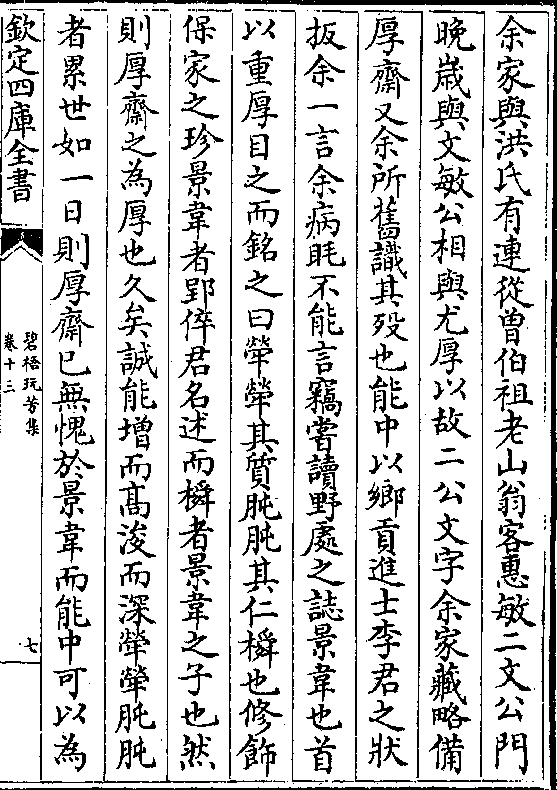 余家與洪氏有連從曾伯祖老山翁客惠敏二文公門
晚嵗與文敏公相與尤厚以故二公文字余家藏略備
厚齋又余所舊識其歿也能中以鄉貢進士李君之狀
扳余一言余病眊不能言竊嘗讀野處之誌景韋也首
以重厚目之而銘之曰犖犖其質肫肫其仁橓也修飾
保家之珍景韋者郢倅君名述而橓者景韋之子也然
則厚齋之為厚也久矣誠能增而髙浚而深犖犖肫肫
者累世如一日則厚齋已無愧於景韋而能中可以為
欽定四庫全書
碧梧玩芳集
卷十三
七